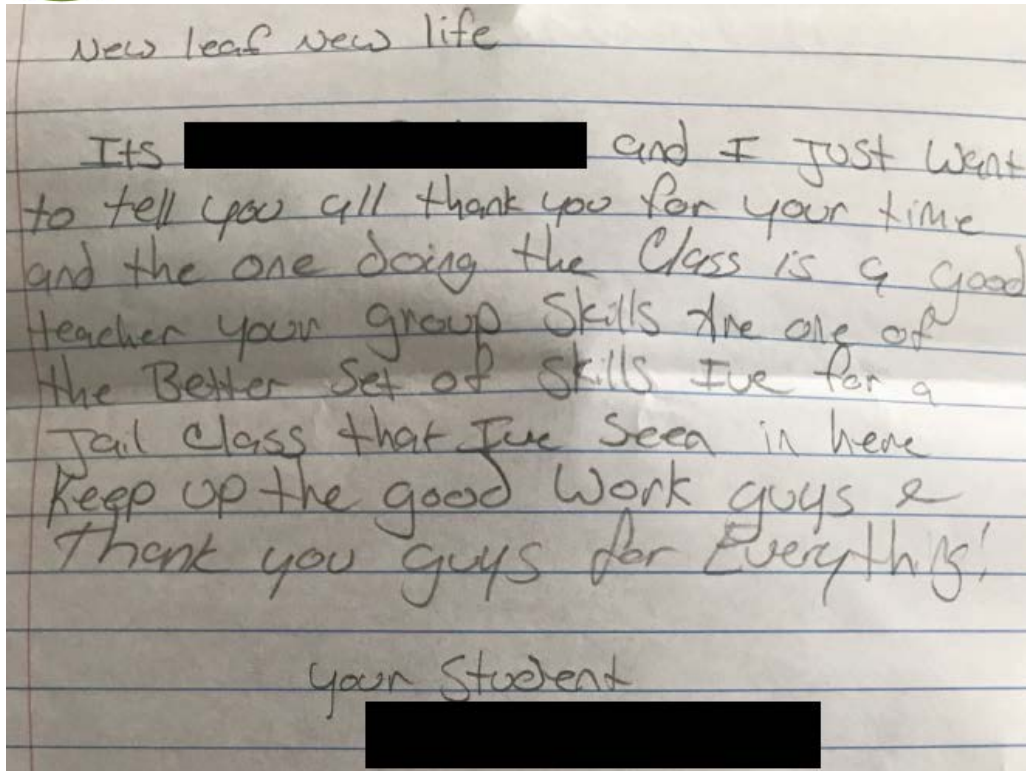 New leaf New life
Its and I Just Want
to tell you all thank you for your time
and the one doing the Class is a good
teacher your group Skills Are one of
the Better Set of Skills Ive for a
Jail Class that Ive Seen in here
Keep up the good Work guys &
Thank you guys for Everything!
your Student